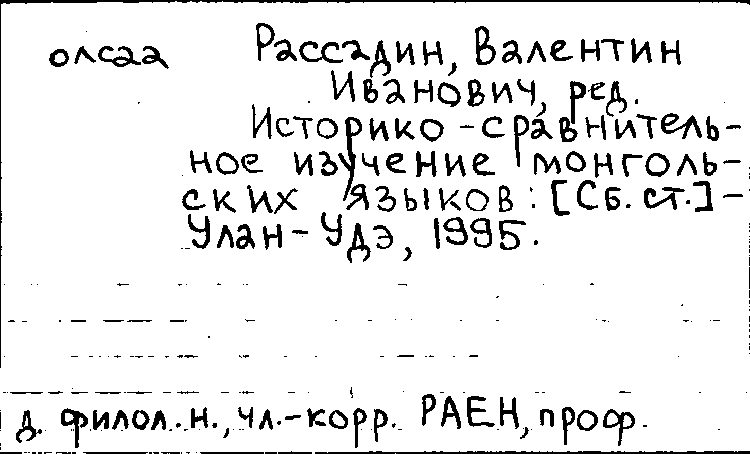 олсаа Рассадин, Валентин
Иванович, ред.
Историко-сравнитель-
ное изучение монголь-
ских языков: [Сб. ст.]-
Улан-Удэ, 1995.
д. филол. н., чл.-корр. РАЕН, проф.